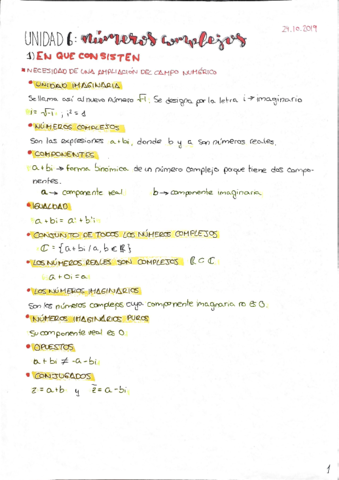 29.10.2019
UNIDAD 6: números complejos
1) EN QUE CONSISTEN
NECESIDAD DE UNA AMPLIACIÓN DEL CAMPO NUMÉRICO
UNIDAD IMAGINARIA
Se llama así al nuevo número √-1. Se designa por la letra i → imaginario
i = √-1 , i² = 1
NÚMEROS COMPLEJOS
Son las expresiones a+bi, donde b y a son números reales.
COMPONENTES
a+bi → forma binómica de un número complejo porque tiene dos compo-
nentes.
a → componente real b → componente imaginaria
IGUALDAD
a+bi = a'+b'i
CONJUNTO DE TODOS LOS NÚMEROS COMPLEJOS
ℂ = {a+bi / a, b ∈ ℝ}
LOS NÚMEROS REALES SON COMPLEJOS ℝ ⊂ ℂ
a + 0i = a
LOS NÚMEROS IMAGINARIOS
Son los números complejos cuya componente imaginaria no es 0.
NÚMEROS IMAGINARIOS PUROS
Su componente real es 0.
OPUESTOS
a + bi ≠ -a - bi
CONJUGADOS
z = a+b y z̄ = a - bi
1